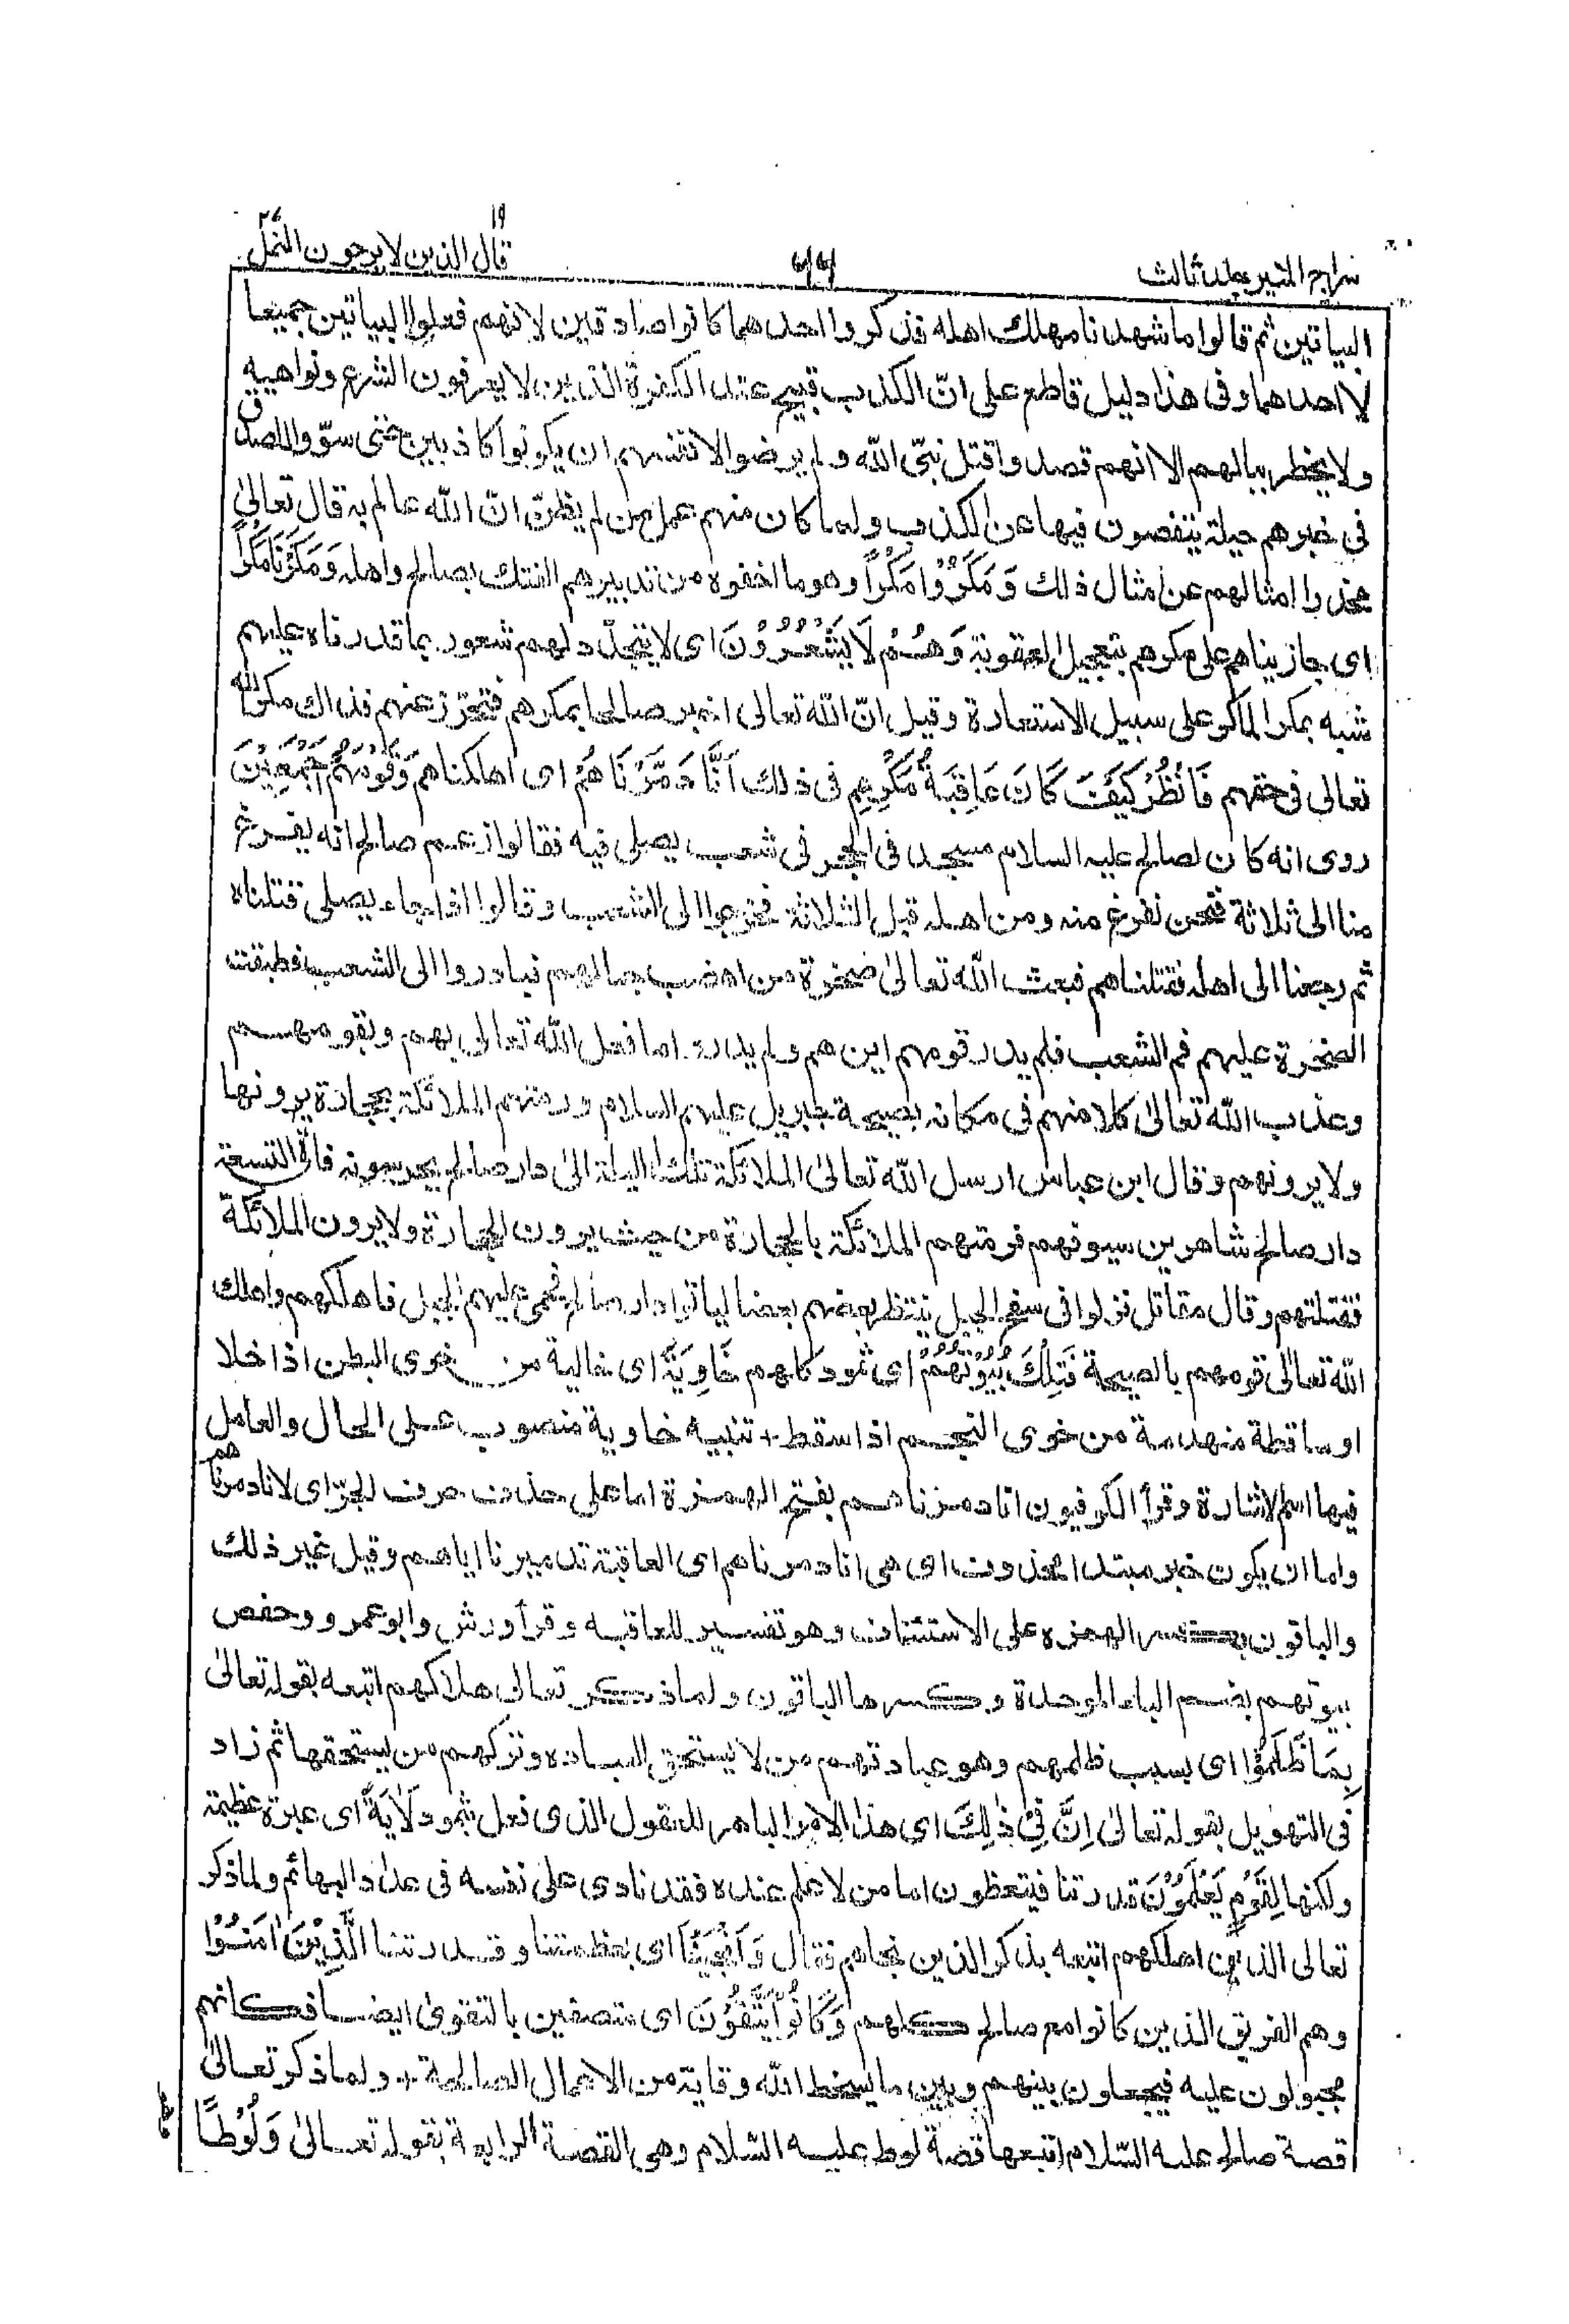 سراج المنير جلد ثالث
٦٦
قال الذين لا يرجون النمل
١٩
٢٧
البياتين ثم قالوا ما شهدنا مهلك اهله فذكروا احدهما كانوا صادقين لانهم فعلوا البياتين جميعا
لا احدهما وفى هذا دليل قاطع على انّ الكذب قبيح عند الكفرة الذين لا يعرفون الشرع ونواهيه
ولا يخطر ببالهم الا انهم قصدوا قتل نبىّ الله ولم يرضوا لانفسهم ان يكونوا كاذبين حتى سوّوا للصدق
فى خبرهم حيلة يتفصون فيها عن الكذب ولما كان منهم عمل من لم يظنّ انّ الله عالم به قال تعالىٰ
محذرا امثالهم عن امثال ذلك وَمَكَرُوْا مَكْراً وهو ما اخفوه من تدبيرهم الفتك بصالح واهله وَمَكَرْنَا مَكْراً
اى جازيناهم على مكرهم بتعجيل العقوبة وَهُمْ لَا يَشْعُرُوْنَ اى لا يتجدّد لهم شعور بما قدرناه عليهم
شبه بمكر الماكر على سبيل الاستعارة وقيل انّ الله تعالى اخبر صالحا بمكرهم فتحرّز عنهم فذاك مكر الله
تعالى فى حقهم فَانْظُرْ كَيْفَ كَانَ عَاقِبَةُ مَكْرِهِم فى ذلك اَنَّا دَمَّرْنَاهُمْ اى اهلكناهم وَقَوْمَهُمْ اَجْمَعِيْنَ
روى انه كان لصالح عليه السلام مسجد فى الحجر فى شعب يصلى فيه فقالوا زعم صالح انه يفرغ
منا الى ثلاثة فنحن نفرغ منه ومن اهله قبل الثلاثة فخرجوا الى الشعب وقالوا اذا جاء يصلى قتلناه
ثم رجعنا الى اهله فقتلناهم فبعث الله تعالىٰ صخرة من اهضب جبالهم فبادروا الى الشعب فطبقت
الصخرة عليهم فم الشعب فلم يدر قومهم اين هم ولم يدروا ما فعل الله تعالى بهم وبقومهم
وعذب الله تعالىٰ كلا منهم فى مكانه بصيحة جبريل عليهم السلام ورمتهم الملائكة بحجارة يرونها
ولا يرونهم وقال ابن عباس ارسل الله تعالىٰ الملائكة تلك الليلة الىٰ دار صالح يحرسونه فاتى التسعة
دار صالح شاهرين سيوفهم فرمتهم الملائكة بالحجارة من حيث يرون الحجارة ولا يرون الملائكة
فقتلتهم وقال مقاتل نزلوا فى سفح الجبل ينتظر بعضهم بعضا لياتوا دار صالح عليهم الجبل فاهلكهم واهلك
الله تعالىٰ قومهم بالصيحة فَتِلْكَ بُيُوْتُهُمْ اى ثمود كلهم خَاوِيَةً اى خالية من خوى البطن اذا خلا
او ساقطة منهدمة من خوى النجم اذا سقط + تنبيه خاوية منصوب على الحال والعامل
فيها اسم الاشارة وقرأ الكوفيون انا دمرناهم بفتح الهمزة اما على حذف حرف الجرّ اى لانا دمرناهم
واما ان يكون خبر مبتدا محذوف اى هى انا دمرناهم اى العاقبة تدميرنا اياهم وقيل غير ذلك
والباقون بكسر الهمزه على الاستئناف وهو تفسير للعاقبه وقرأ ورش وابو عمرو وحفص
بيوتهم بضم الباء الموحدة وكسرها الباقون ولما ذكر تعالى هلاكهم اتبعه بقوله تعالىٰ
بِمَا ظَلَمُوْا اى بسبب ظلمهم وهو عبادتهم من لا يستحق العباده وتركهم من يستحقها ثم زاد
فى التهويل بقوله تعالىٰ اِنَّ فِىْ ذٰلِكَ اى هذا الامر الباهر للعقول الذى فعل بثمود لَاٰيَةً اى عبرة عظيمة
ولكنها لِقَوْمٍ يَعْلَمُوْنَ قدرتنا فيتعظون اما من لا علم عنده فقد نادى على نفسه فى عداد البهائم ولما ذكر
تعالى الذين اهلكهم اتبعه بذكر الذين نجاهم فقال وَاَنْجَيْنَا اى بعظمتنا وقدرتنا الَّذِيْنَ اٰمَنُوْا
وهم الفريق الذين كانوا مع صالح كلهم وَكَانُوْا يَتَّقُوْنَ اى متصفين بالتقوىٰ ايضا فكانهم
مجبولون عليه فيجعلون بينهم وبين ما يسخط الله وقاية من الاعمال الصالحة + ولما ذكر تعالىٰ
قصة صالح عليه السّلام اتبعها قصة لوط عليه السّلام وهى القصة الرابعة بقوله تعالىٰ وَلُوْطًا